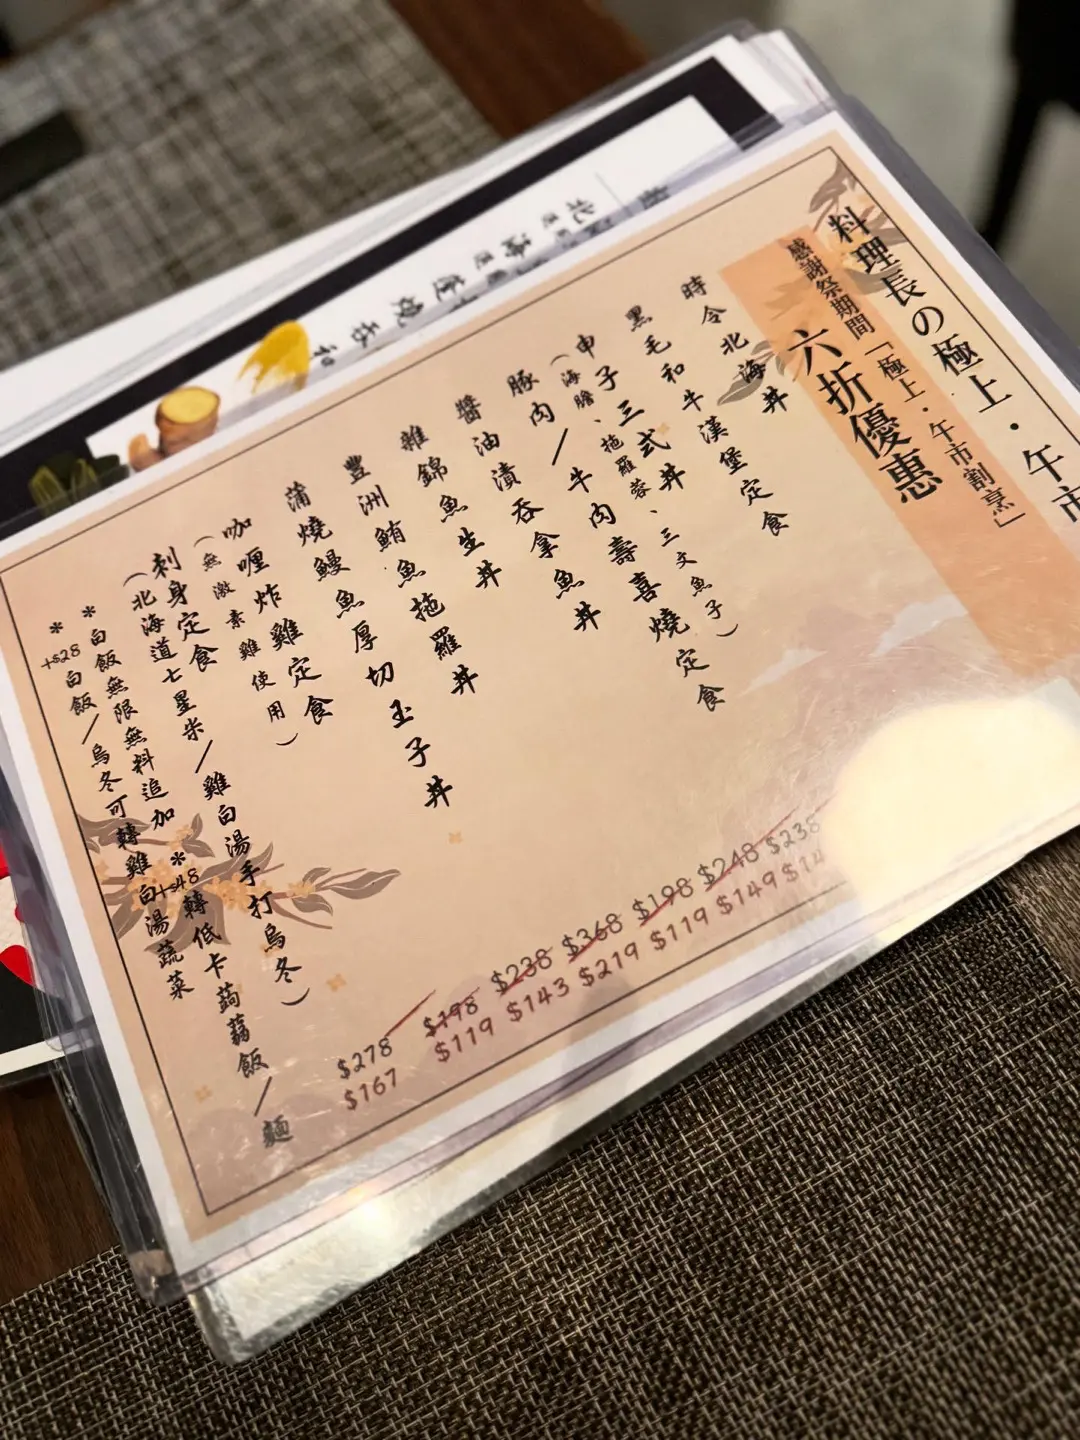 料理長の極上・午市
感謝祭期間「極上・午市割烹」
六折優惠
時令北海丼
黑毛和牛漢堡定食
申子三式丼
（海膽、拖羅蓉、三文魚子）
豚肉／牛肉壽喜燒定食
醬油漬吞拿魚丼
雜錦魚生丼
豐洲鮪魚拖羅丼
蒲燒鰻魚厚切玉子丼
咖喱炸雞定食
（無激素雞使用）
刺身定食
（北海道七星米／雞白湯手打烏冬）
*白飯無限無料追加
*+$48轉低卡蒟蒻飯／麵
*+$28白飯／烏冬可轉雞白湯蔬菜
$278 $198 $238 $368 $198 $248 $238
$167 $119 $143 $219 $119 $149 $14